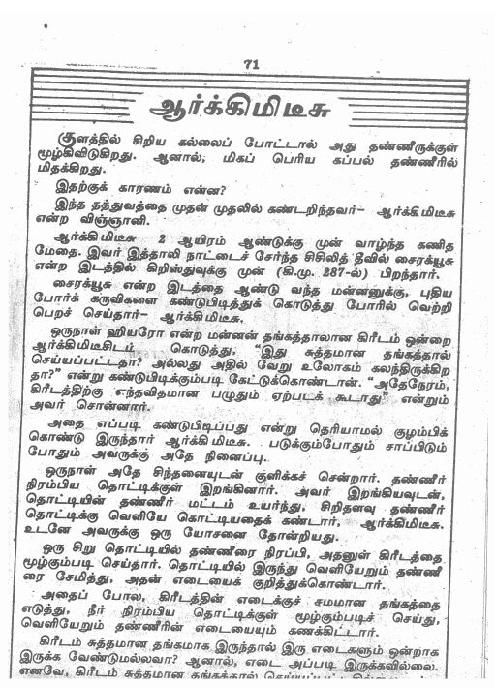 71
ஆர்க்கிமிடீசு
குளத்தில் சிறிய கல்லைப் போட்டால் அது தண்ணீருக்குள்
மூழ்கிவிடுகிறது. ஆனால், மிகப் பெரிய கப்பல் தண்ணீரில்
மிதக்கிறது.
இதற்குக் காரணம் என்ன?
இந்த தத்துவத்தை முதன் முதலில் கண்டறிந்தவர்- ஆர்க்கிமிடீசு
என்ற விஞ்ஞானி.
ஆர்க்கிமிடீசு 2 ஆயிரம் ஆண்டுக்கு முன் வாழ்ந்த கணித
மேதை. இவர் இத்தாலி நாட்டைச் சேர்ந்த சிசிலித் தீவில் சைரக்யூசு
என்ற இடத்தில் கிறிஸ்துவுக்கு முன் (கி.மு. 287-ல்) பிறந்தார்.
சைரக்யூசு என்ற இடத்தை ஆண்டு வந்த மன்னனுக்கு, புதிய
போர்க் கருவிகளை கண்டுபிடித்துக் கொடுத்து போரில் வெற்றி
பெறச் செய்தார்- ஆர்க்கிமிடீசு.
ஒருநாள் ஹியரோ என்ற மன்னன் தங்கத்தாலான கிரீடம் ஒன்றை
ஆர்க்கிமிடீசிடம் கொடுத்து, "இது சுத்தமான தங்கத்தால்
செய்யப்பட்டதா? அல்லது அதில் வேறு உலோகம் கலந்திருக்கிற
தா?" என்று கண்டுபிடிக்கும்படி கேட்டுக்கொண்டான். "அதேநேரம்,
கிரீடத்திற்கு எந்தவிதமான பழுதும் ஏற்படக் கூடாது" என்றும்
அவர் சொன்னார்.
அதை எப்படி கண்டுபிடிப்பது என்று தெரியாமல் குழம்பிக்
கொண்டு இருந்தார் ஆர்க்கிமிடீசு. படுக்கும்போதும் சாப்பிடும்
போதும் அவருக்கு அதே நினைப்பு.
ஒருநாள் அதே சிந்தனையுடன் குளிக்கச் சென்றார். தண்ணீர்
நிரம்பிய தொட்டிக்குள் இறங்கினார். அவர் இறங்கியவுடன்,
தொட்டியின் தண்ணீர் மட்டம் உயர்ந்து, சிறிதளவு தண்ணீர்
தொட்டிக்கு வெளியே கொட்டியதைக் கண்டார், ஆர்க்கிமிடீசு.
உடனே அவருக்கு ஒரு யோசனை தோன்றியது.
ஒரு சிறு தொட்டியில் தண்ணீரை நிரப்பி, அதனுள் கிரீடத்தை
மூழ்கும்படி செய்தார். தொட்டியில் இருந்து வெளியேறும் தண்ணீ
ரை சேமித்து, அதன் எடையைக் குறித்துக்கொண்டார்.
அதைப் போல, கிரீடத்தின் எடைக்குச் சமமான தங்கத்தை
எடுத்து, நீர் நிரம்பிய தொட்டிக்குள் மூழ்கும்படிச் செய்து,
வெளியேறும் தண்ணீரின் எடையையும் கணக்கிட்டார்.
கிரீடம் சுத்தமான தங்கமாக இருந்தால் இரு எடைகளும் ஒன்றாக
இருக்க வேண்டுமல்லவா? ஆனால், எடை அப்படி இருக்கவில்லை.
எனவே, கிரீடம் சுத்தமான தங்கத்தால்